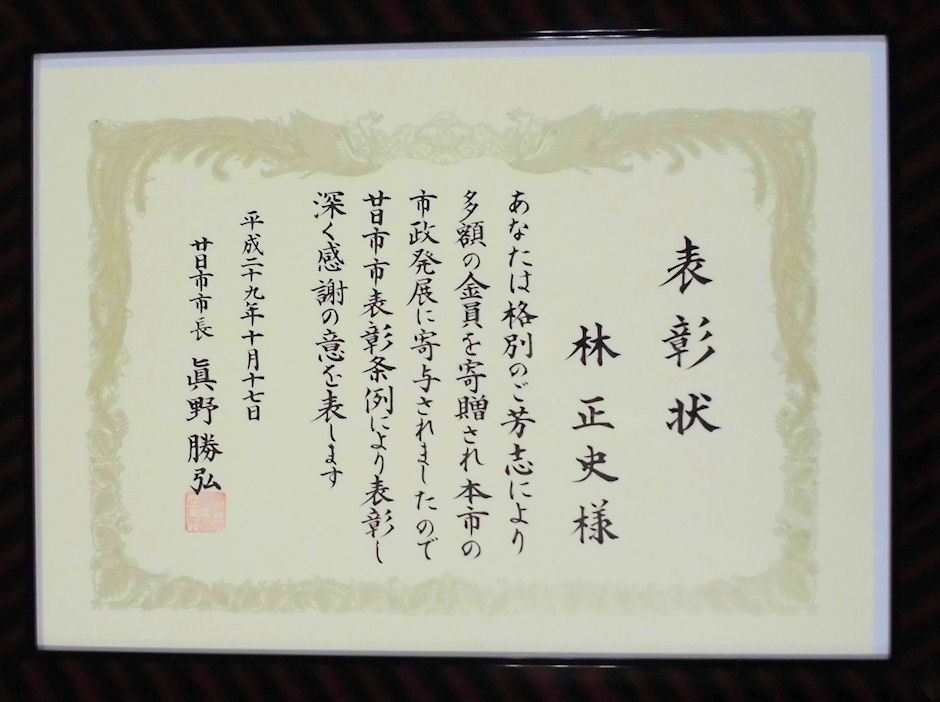 表彰状
林正史様
あなたは格別のご芳志により
多額の金員を寄贈され本市の
市政発展に寄与されましたので
廿日市市表彰条例により表彰し
深く感謝の意を表します
平成二十九年十月十七日
廿日市市長 眞野勝弘